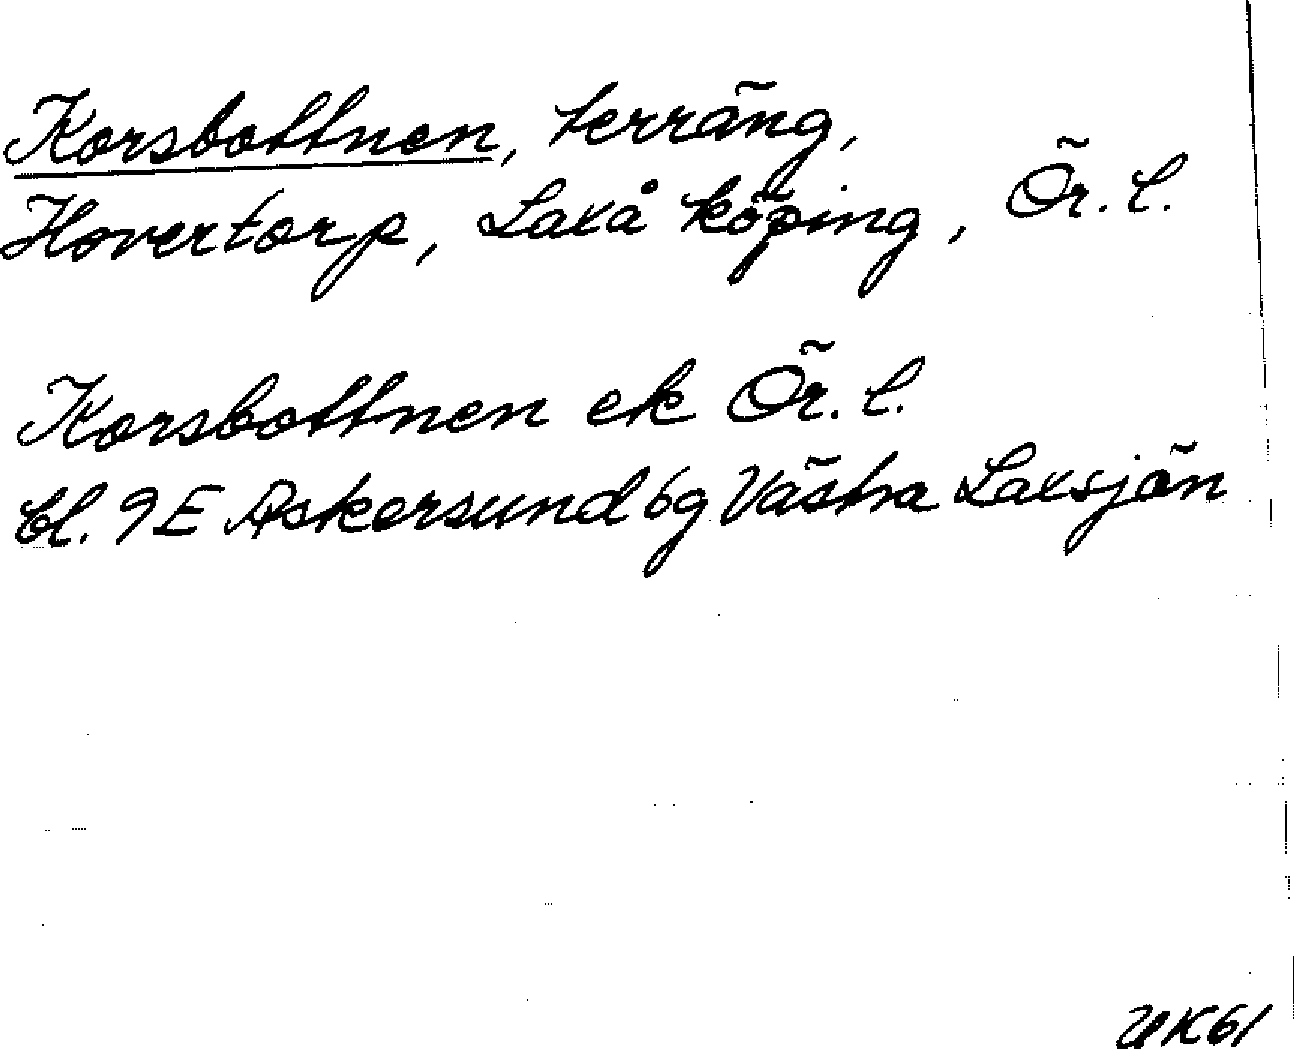 Korsbottnen, terräng,
Hovertorp, Laxå köping, Ör. l.
Korsbottnen ek Ör. l.
bl. 9E Askersund 6g Västra Laxsjön
UK61